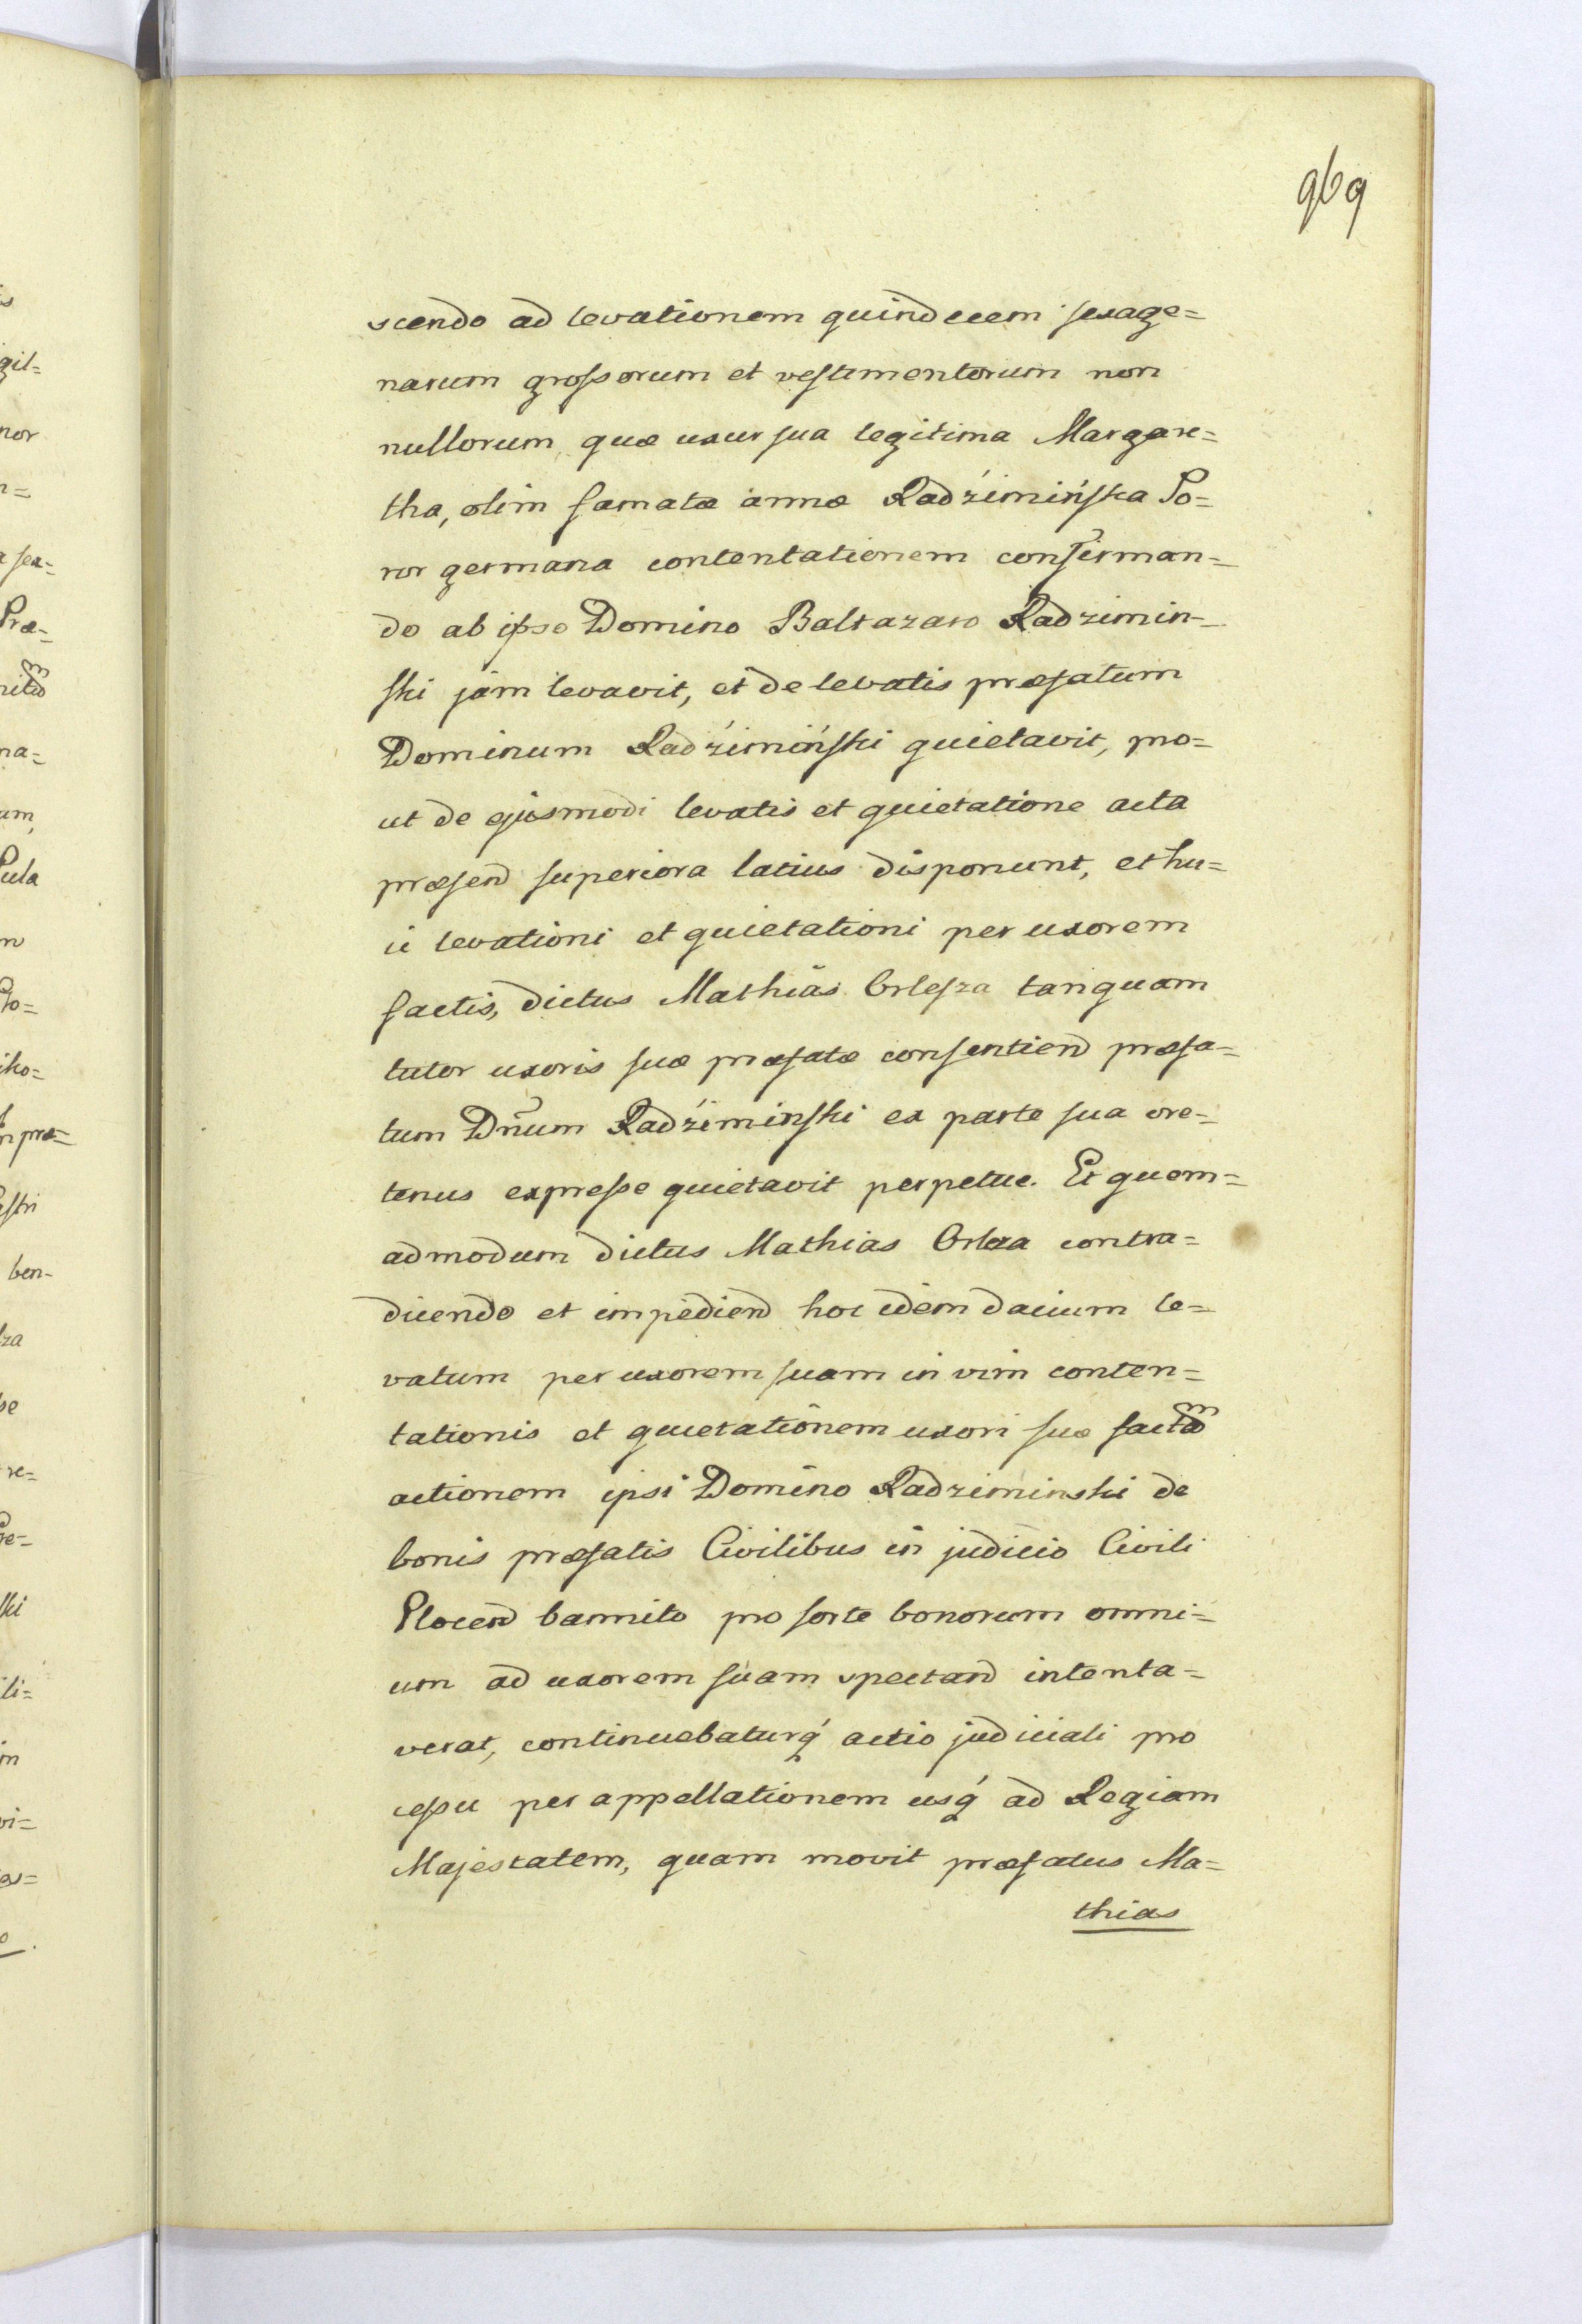 969
scendo ad levationem quindecem sexage=
narum grossorum et vestimentorum non
nullorum, quæ uxur sua legitima Margare=
tha, olim famatæ annæ Radźimińska So=
ror germana contentationem confirman=
do ab ipso Domino Baltazaro Radzimin-
ski jam levavit, et de levatis præfatum
Dominum Radźimiński quietavit, pro=
ut de ejusmodi levatis et quietatione acta
præsend superiora latius disponunt, et hu=
ic levationi et quietationi per uxorem
factis, dictus Mathias Orlesza tanquam
tutor uxoris suæ præfatæ consentiend præfa=
tum Dnum Radźiminski ex parte sua ore=
tenus expresse quietavit perpetue. Et quem=
admodum dictus Mathias Orlexa contra=
dicendo et impediend hoc idem dacium le=
vatum per uxorem suam in vim conten=
tationis et quietationem uxori suæ factam
actionem ipsi Domino Radziminski de
bonis præfatis Civilibus in judicio Civili
Plocend bannito pro sorte bonorum omni=
um ad uxorem suam spectand intenta=
verat, continuebaturq́ actio judiciali pro
cessu per appellationem usq́ ad Regiam
Majestatem, quam movit præfatus Ma=
thias